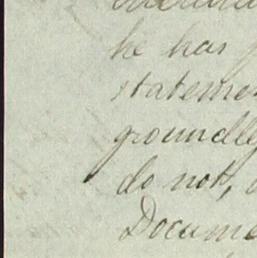 he has
statemen
groundle
do not,
Docume